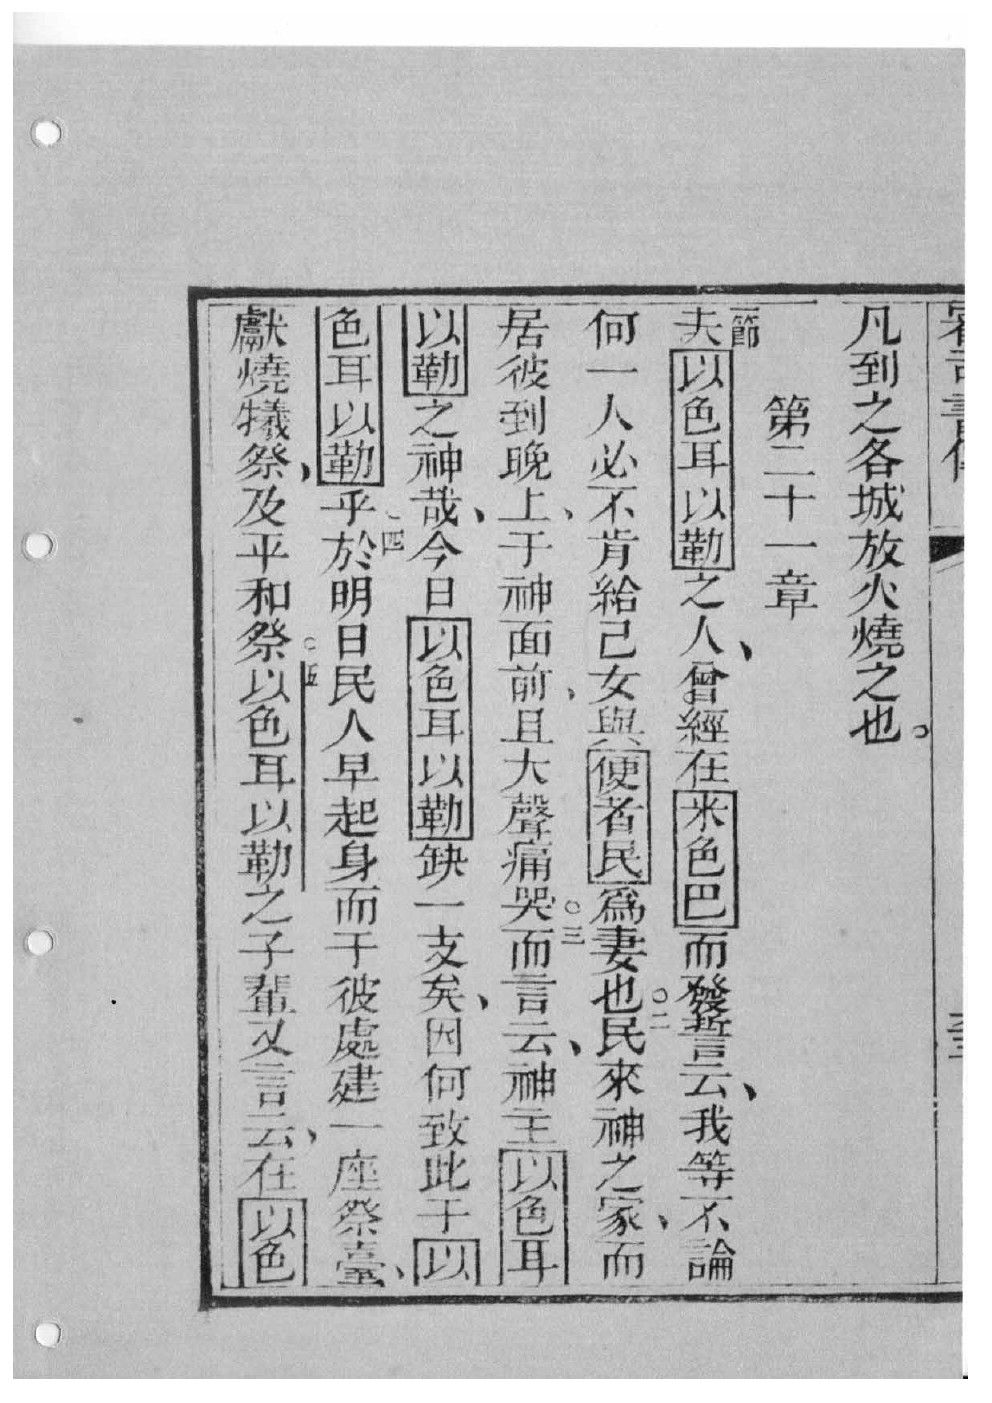 凡到之各城放火燒之也。
第二十一章
一節夫以色耳以勒之人、曾經在米色巴而發誓云、我等不論
何一人必不肯給己女與便者民爲妻也○二民來神之家、而
居彼到晚上、于神面前、且大聲痛哭○三而言云、神主以色耳
以勒之神哉、今日以色耳以勒缺一支矣、因何致此于以
色耳以勒乎○四於明日民人早起身而于彼處建一座祭臺、
獻燒犧祭、及平和祭○五以色耳以勒之子輩又言云、在以色